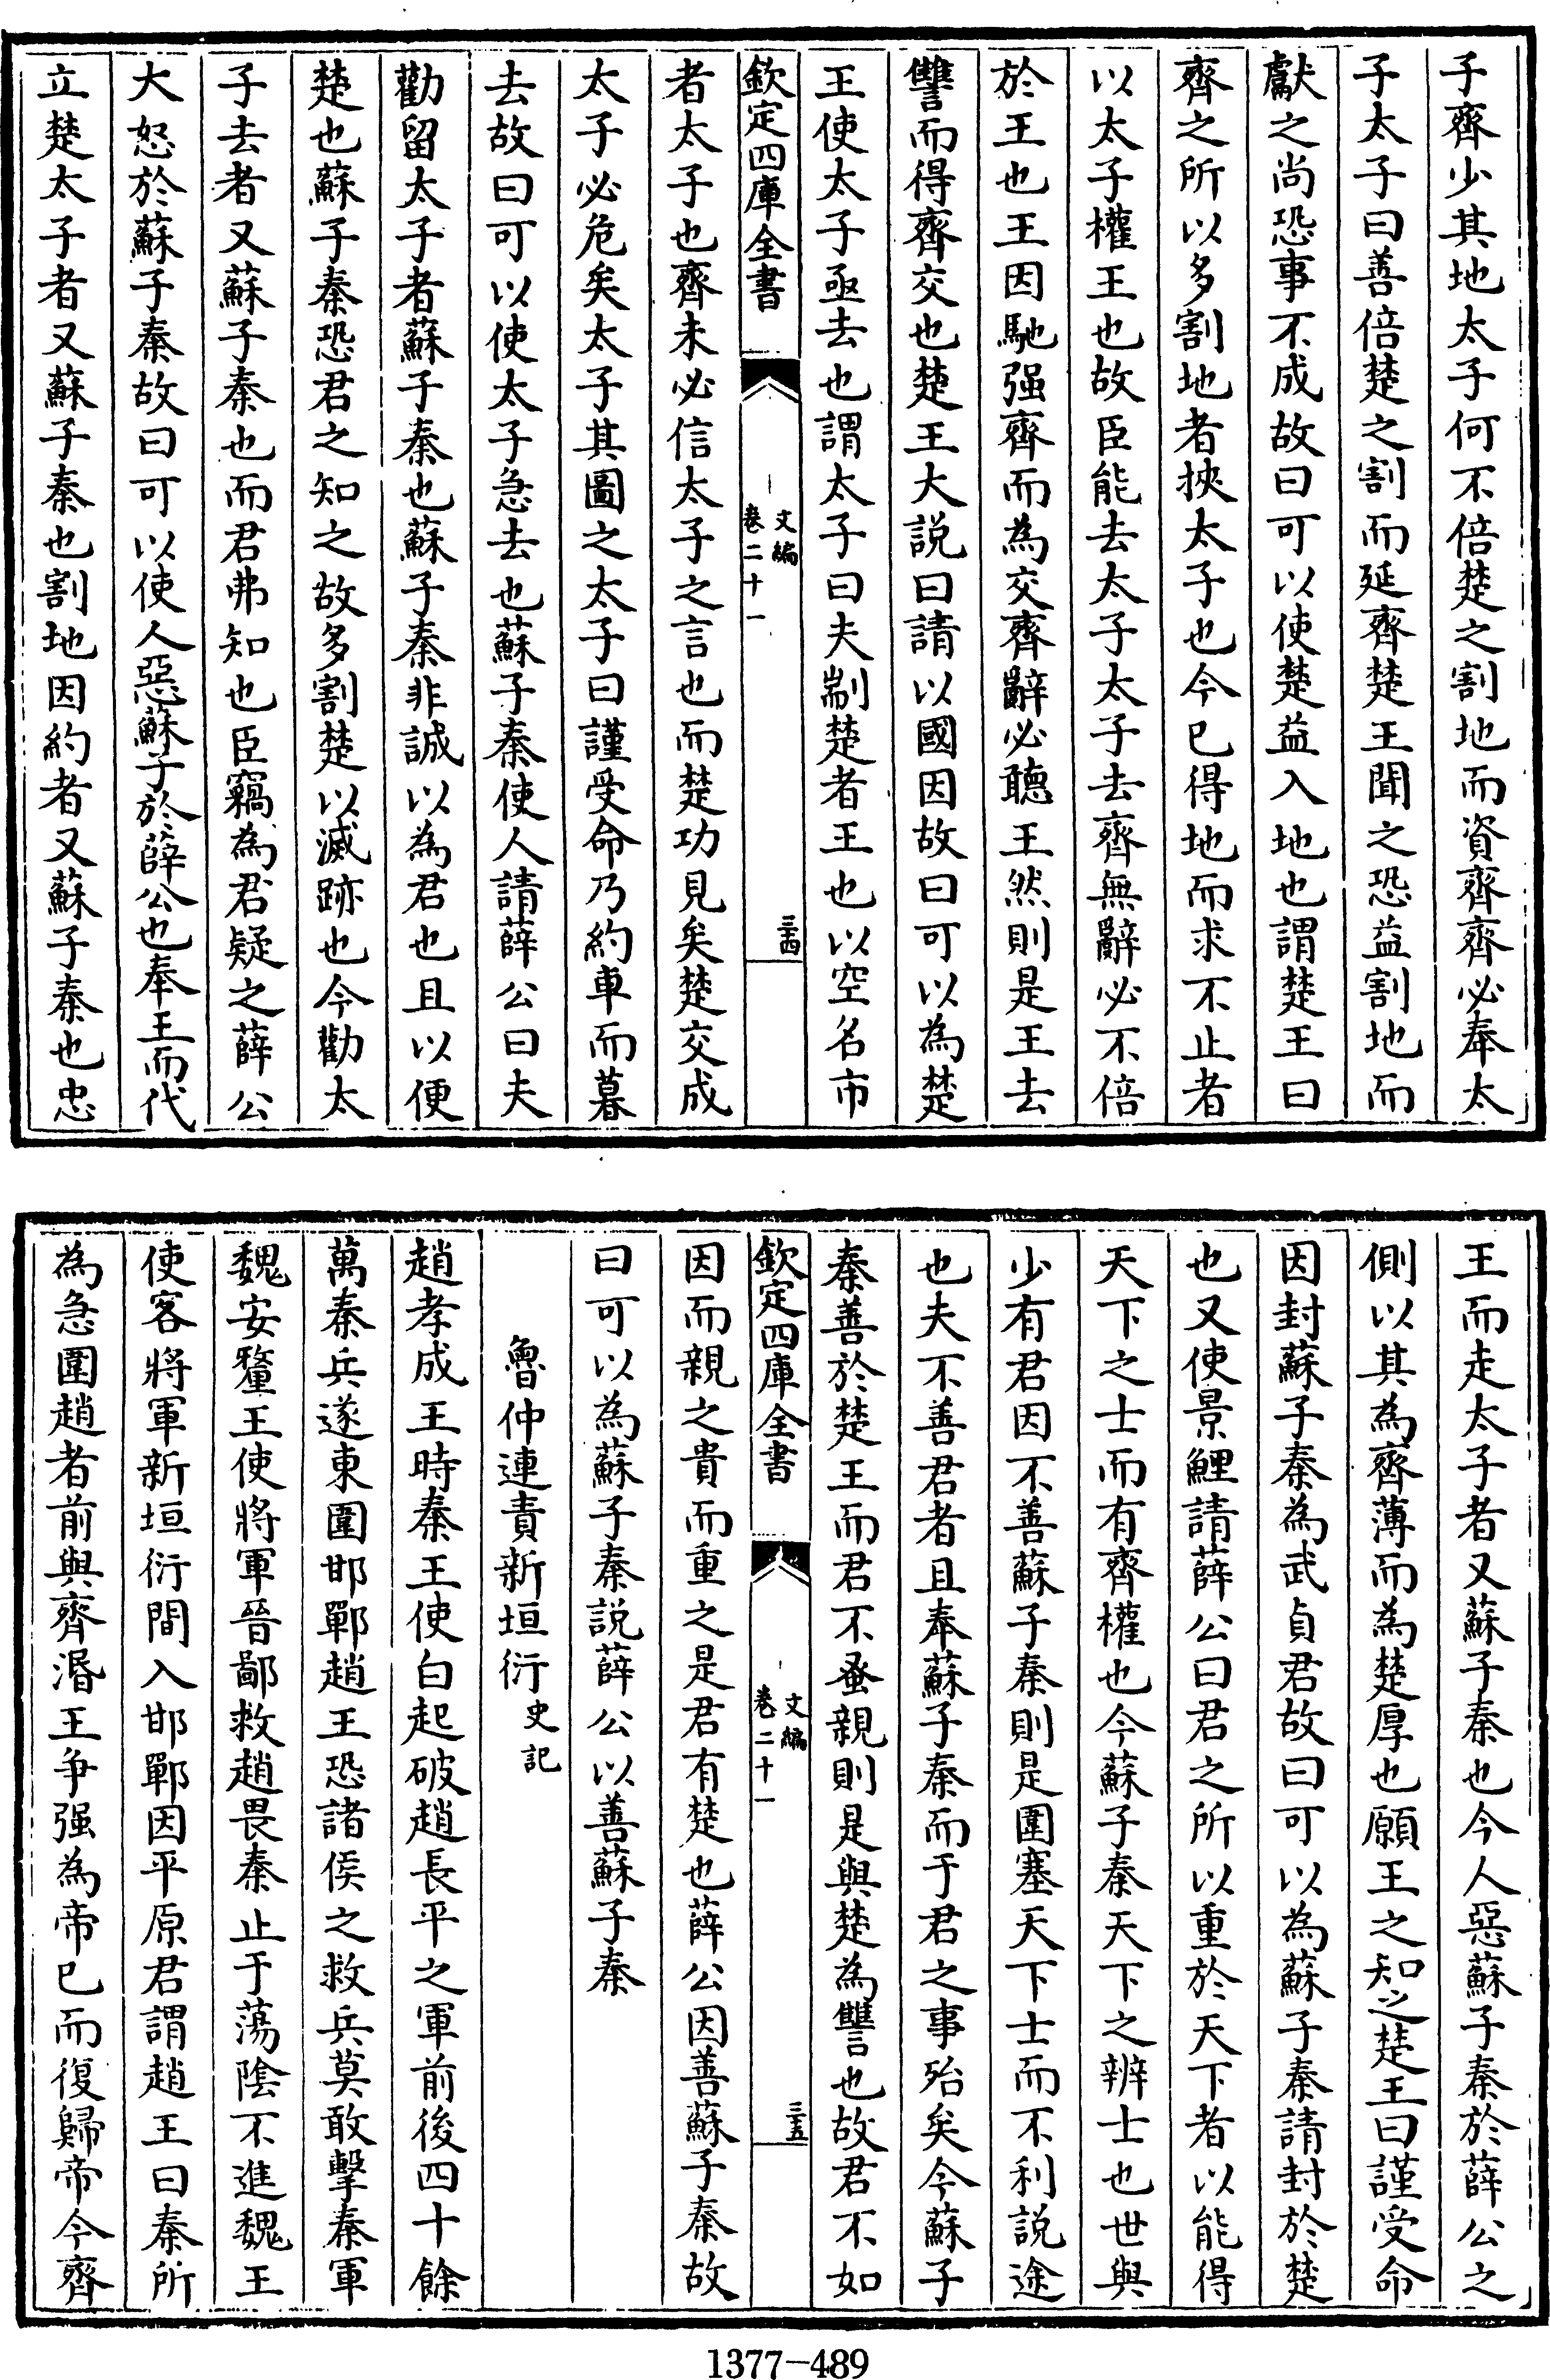 子齊少其地太子何不倍楚之割地而資齊齊必奉太
子太子曰善倍楚之割而延齊楚王聞之恐益割地而
獻之尚恐事不成故曰可以使楚益入地也謂楚王曰
齊之所以多割地者挾太子也今已得地而求不止者
以太子權王也故臣能去太子太子去齊無辭必不倍
於王也王因馳强齊而為交齊辭必聽王然則是王去
讐而得齊交也楚王大説曰請以國因故曰可以為楚
王使太子亟去也謂太子曰夫剬楚者王也以空名市
欽定四庫全書
文編
卷二十一
三四
者太子也齊未必信太子之言也而楚功見矣楚交成
太子必危矣太子其圖之太子曰謹受命乃約車而暮
去故曰可以使太子急去也蘇子秦使人請薛公曰夫
勸留太子者蘇子秦也蘇子秦非誠以為君也且以便
楚也蘇子秦恐君之知之故多割楚以滅跡也今勸太
子去者又蘇子秦也而君弗知也臣竊為君疑之薛公
大怒於蘇子秦故曰可以使人惡蘇子於薛公也奉王而代
立楚太子者又蘇子秦也割地因約者又蘇子秦也忠
王而走太子者又蘇子秦也今人惡蘇子秦於薛公之
側以其為齊薄而為楚厚也願王之知之楚王曰謹受命
因封蘇子秦為武貞君故曰可以為蘇子秦請封於楚
也又使景鯉請薛公曰君之所以重於天下者以能得
天下之士而有齊權也今蘇子秦天下之辨士也世與
少有君因不善蘇子秦則是圍塞天下士而不利説途
也夫不善君者且奉蘇子秦而于君之事殆矣今蘇子
秦善於楚王而君不蚤親則是與楚為讐也故君不如
欽定四庫全書
文編
卷二十一
三五
因而親之貴而重之是君有楚也薛公因善蘇子秦故
曰可以為蘇子秦説薛公以善蘇子秦
魯仲連責新垣衍 史記
趙孝成王時秦王使白起破趙長平之軍前後四十餘
萬秦兵遂東圍邯鄲趙王恐諸侯之救兵莫敢擊秦軍
魏安釐王使將軍晉鄙救趙畏秦止于蕩陰不進魏王
使客將軍新垣衍間入邯鄲因平原君謂趙王曰秦所
為急圍趙者前與齊湣王爭强為帝已而復歸帝今齊
1377-489